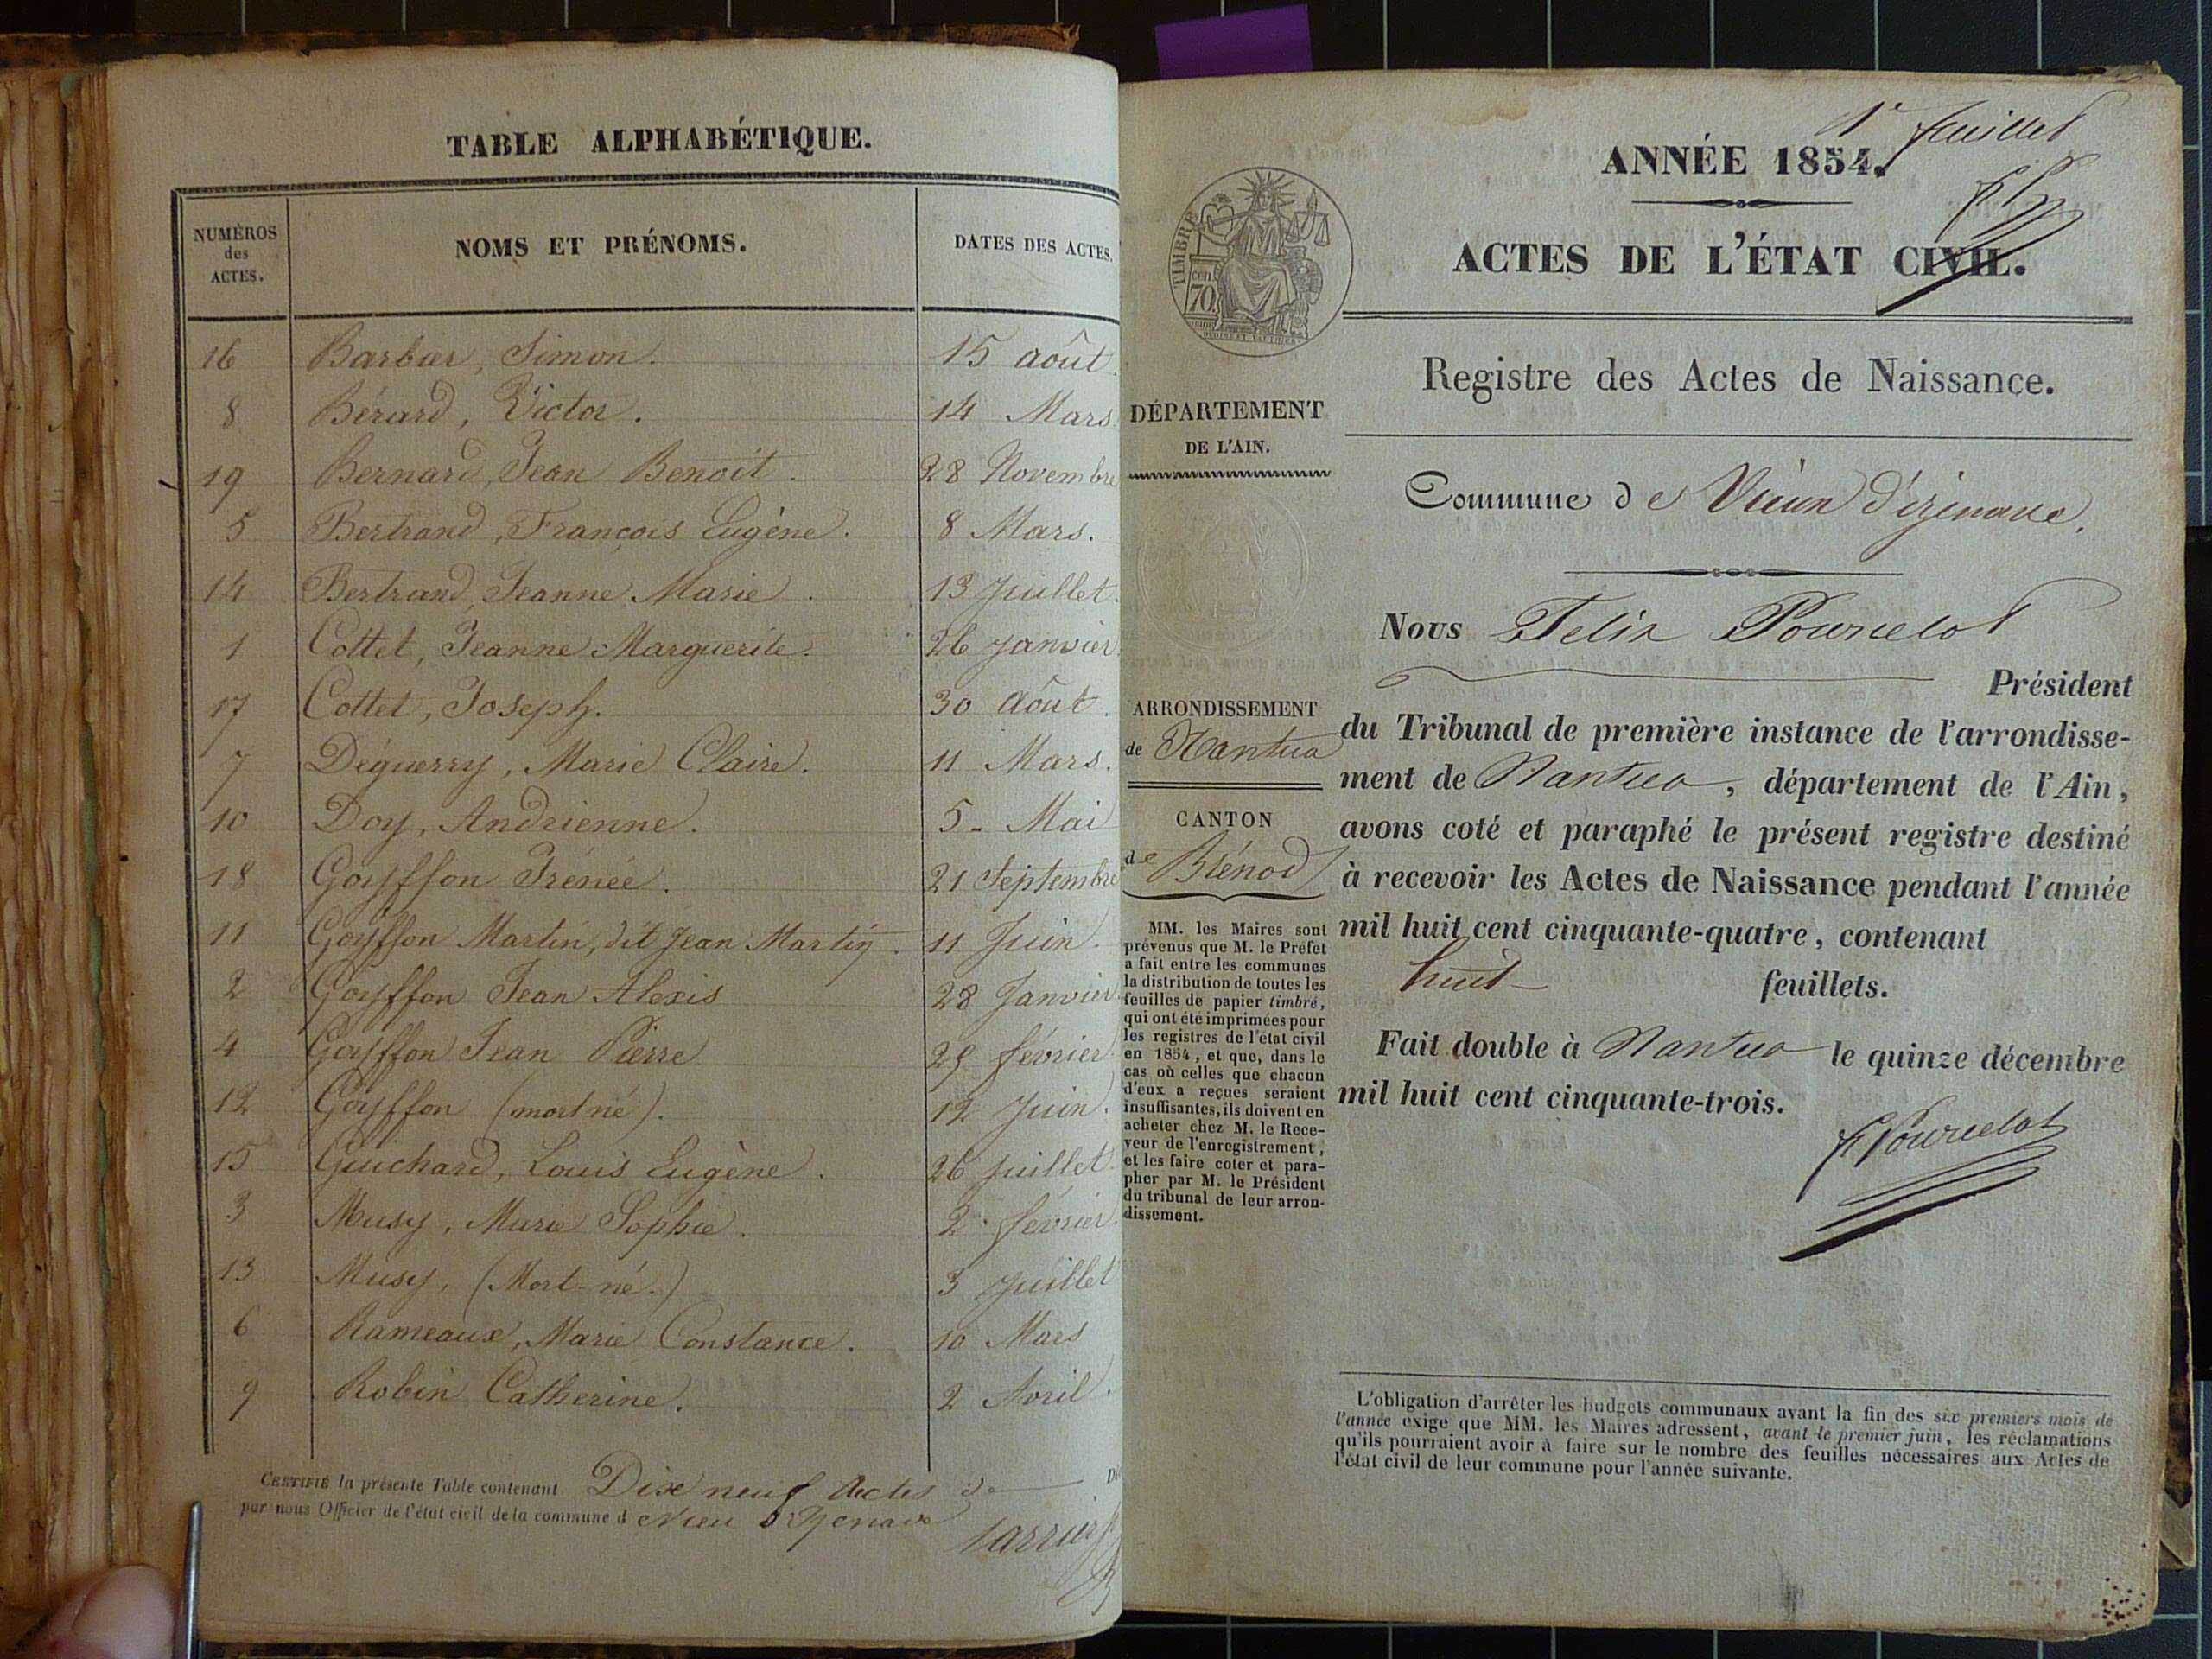 TABLE ALPHABÉTIQUE.
NUMÉROS des ACTES. NOMS ET PRÉNOMS. DATES DES ACTES.
16 Barbier, Simon. 15 août.
8 Bérard, Victor. 14 Mars
19 Bernard, Jean Benoît. 28 Novembre
5 Bertrand, François Eugène. 8 Mars.
14 Bertrand, Jeanne Marie. 13 Juillet.
1 Cottet, Jeanne Marguerite. 26 Janvier
17 Cottet, Joseph. 30 août.
7 Déguerry, Marie Claire. 11 Mars.
10 Doy, Andrienne. 5 - Mai
18 Goyffon Irénée. 21 Septembre
11 Goyffon Martin, dit Jean Martin. 11 Juin.
2 Goyffon Jean Alexis 28 Janvier.
4 Goyffon Jean Pierre février
12 Goyffon (mort né). 12 Juin.
15 Guichard, Louis Eugène. 26 Juillet.
3 Musy, Marie Sophie. 2 février.
13 Musy, (Mort-né.) 3 Juillet
6 Rameaux, Marie Constance. 10 Mars
9 Robin Catherine. 2 Avril.
CERTIFIÉ la présente Table contenant Dix neuf Actes
par nous Officier de l'état civil de la commune d
1er feuillet
ANNÉE 1854.
ACTES DE L'ÉTAT CIVIL.
TIMBRE
cent
70.
Registre des Actes de Naissance.
DÉPARTEMENT
DE L'AIN.
Commune de Vieux d'izenave.
Nous Felix Pourcelot
Président
du Tribunal de première instance de l'arrondisse-
ment de Nantua, département de l'Ain,
avons coté et paraphé le présent registre destiné
à recevoir les Actes de Naissance pendant l'année
mil huit cent cinquante-quatre, contenant
huit feuillets.
Fait double à Nantua le quinze décembre
mil huit cent cinquante-trois.
F Pourcelot
ARRONDISSEMENT
de Nantua
CANTON
de Brénod
MM. les Maires sont
prévenus que M. le Préfet
a fait entre les communes
la distribution de toutes les
feuilles de papier timbré,
qui ont été imprimées pour
les registres de l'état civil
en 1854, et que, dans le
cas où celles que chacun
d'eux a reçues seraient
insuffisantes, ils doivent en
acheter chez M. le Rece-
veur de l'enregistrement,
et les faire coter et para-
pher par M. le Président
du tribunal de leur arron-
dissement.
L'obligation d'arrêter les budgets communaux avant la fin des six premiers mois de
l'année exige que MM. les Maires adressent, avant le premier juin, les réclamations
qu'ils pourraient avoir à faire sur le nombre des feuilles nécessaires aux Actes de
l'état civil de leur commune pour l'année suivante.